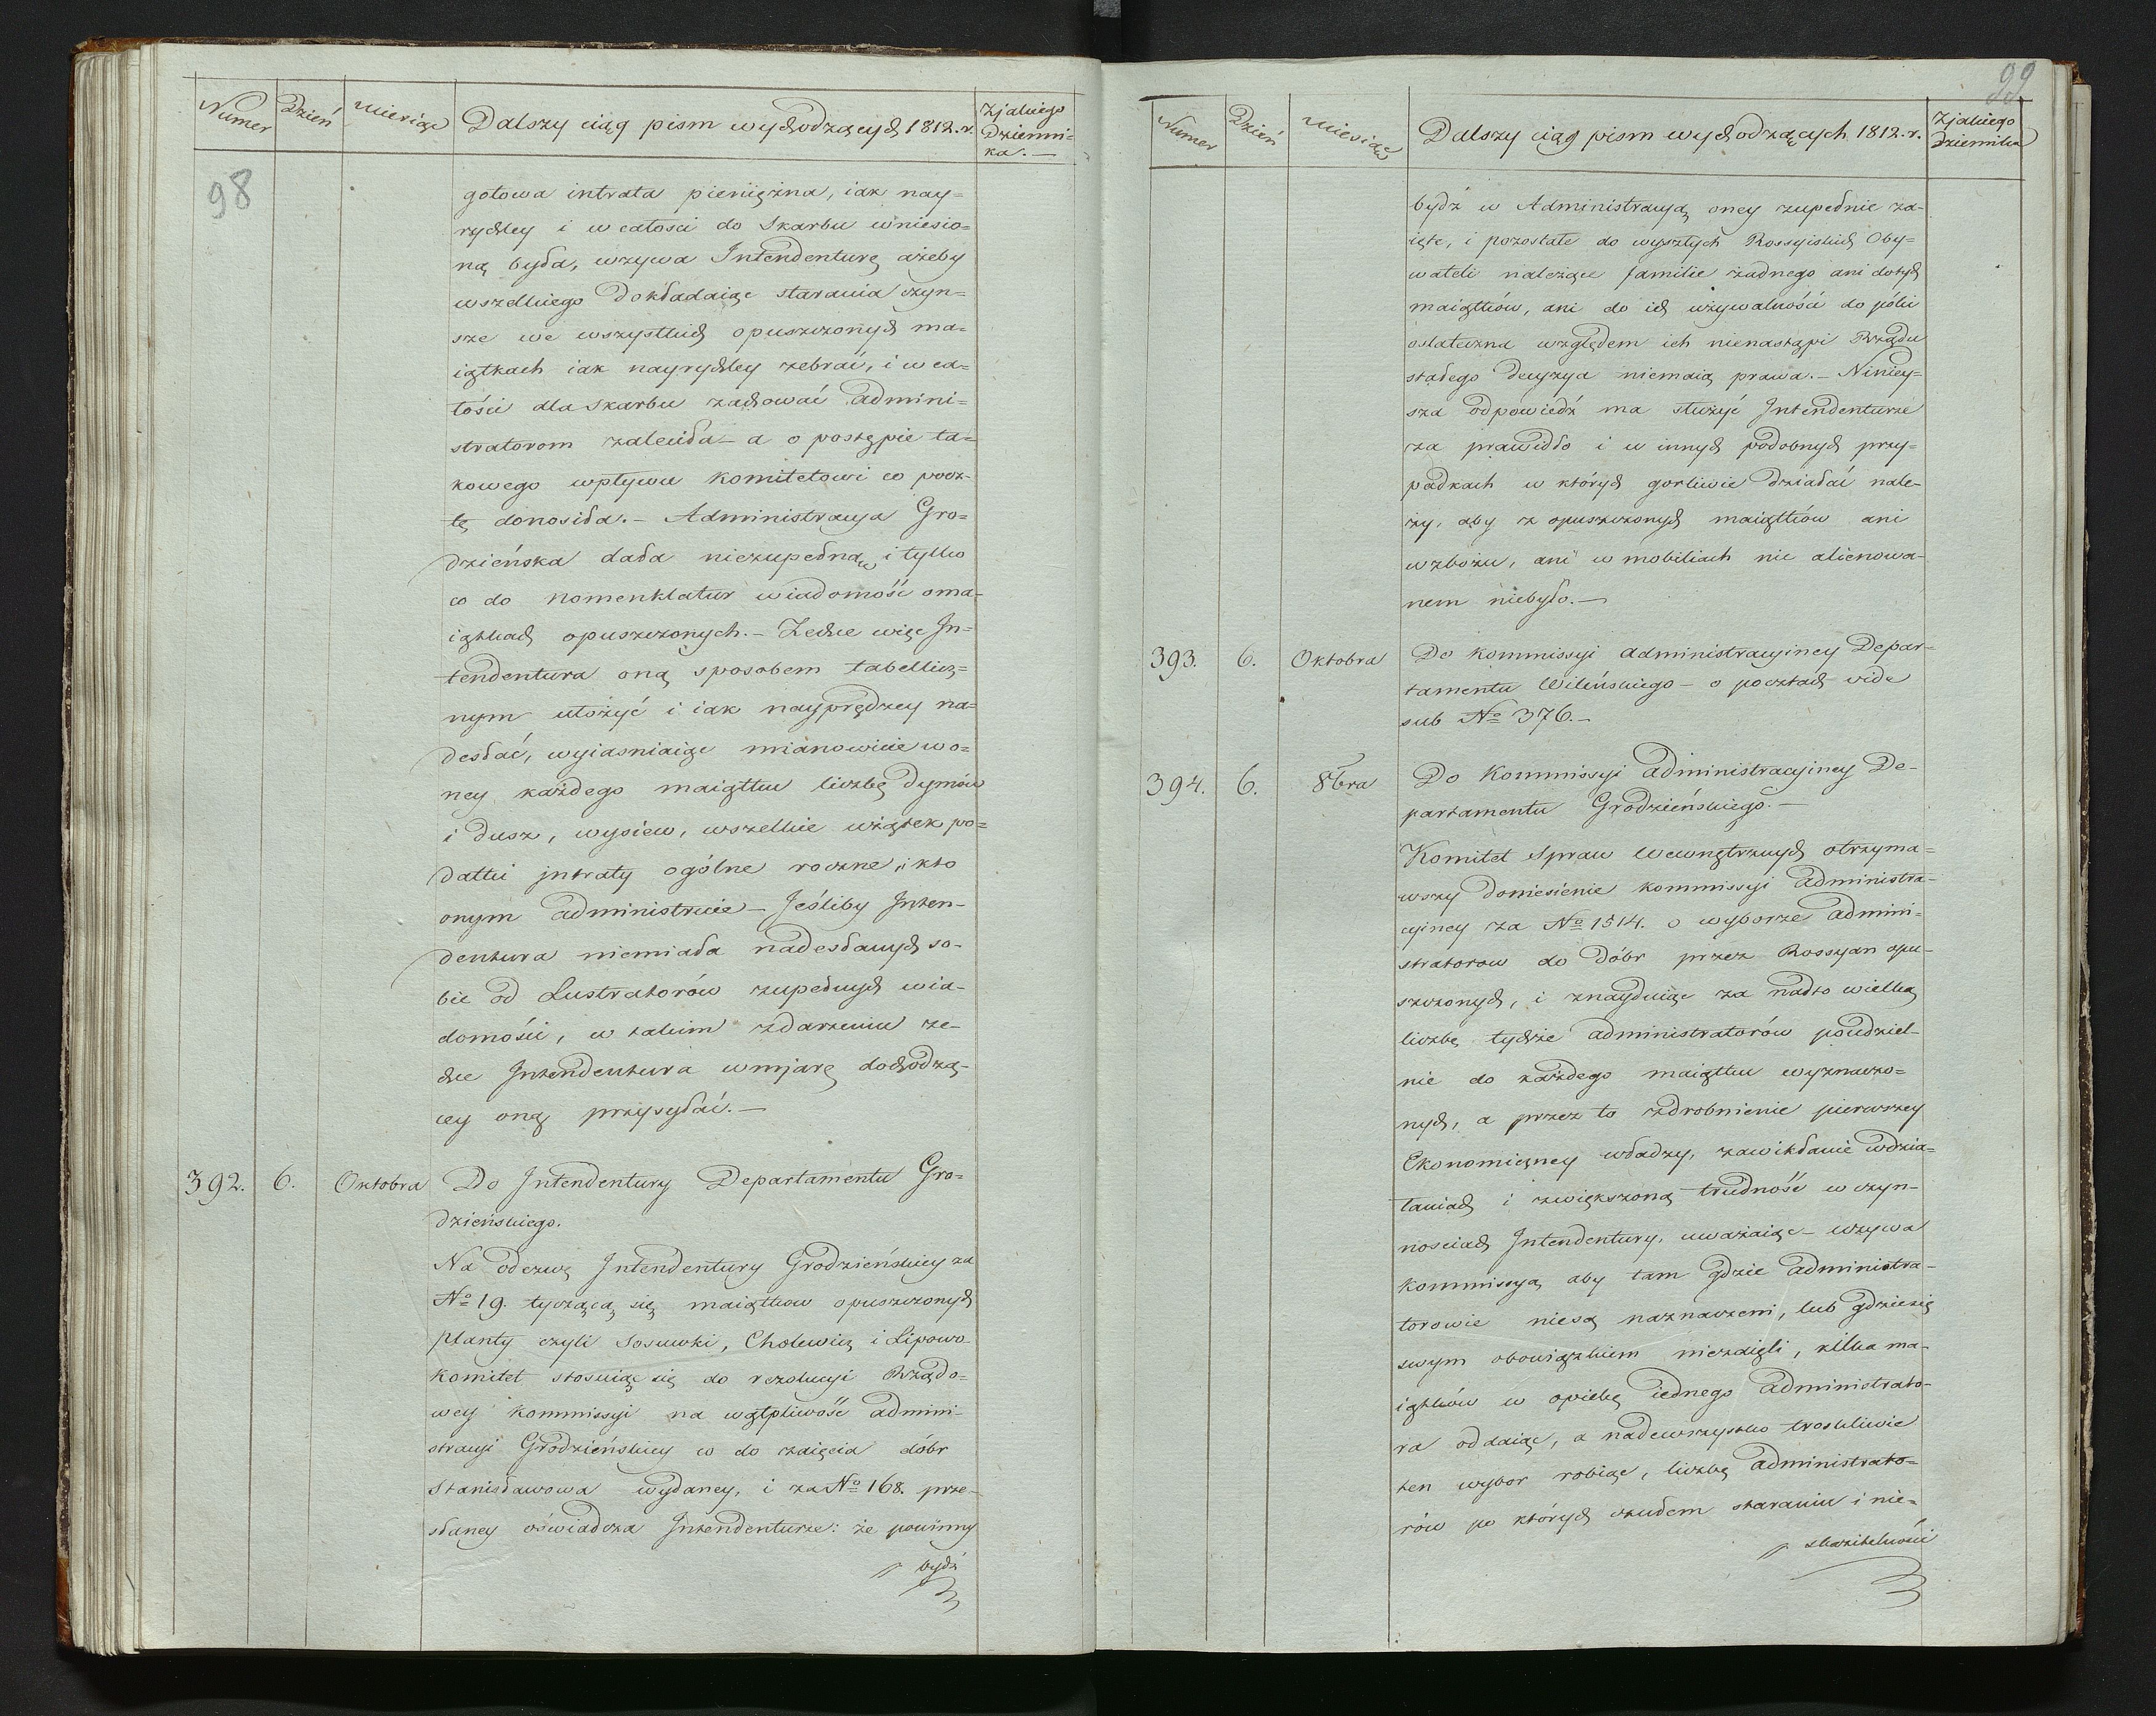 Numer Dzień Miesiąc Dalszy ciąg pism wychodzących 1812. r. Zjakiego Dzienni=
ka.—
98
gotowa intrata pieniężna, iak nay=
rychley i w całości do Skarbu wniesio=
ną była, wzywa Intendenturę ażeby
wszelkiego dokładaiąc starania czyn=
sze we wszystkich opuszczonych ma=
iątkach iak nayrychley zebrać, i w ca=
łości dla skarbu zachować admini=
stratorom zaleciła – a o postępie ta=
kowego wpływu Komitetowi co pocz=
tę donosiła. – Administracya Gro=
dzieńska dała niezupełną i tylko
co do nomenklatur wiadomość o ma=
iątkach opuszczonych. – Zechce więc In=
tendentura oną sposobem tabellicz=
nym ułożyć i iak nayprędzey na=
desłać, wyiaśniaiąc mianowicie wo=
ney każdego maiątku liczbę dymów
i dusz, wysiew, wszelkie wziątek po=
datki jntraty ogólne roczne, i kto
onym administruie – Jeśliby Inten=
dentura niemiała nadesłanych so=
bie od Lustratorów zupełnych wia=
domości, w takim zdarzeniu ze=
chce Jntendentura wmjarę dochodzą=
cey oną przysyłać. —
392. 6. Oktobra Do Jntendentury Departamentu Gro=
dzieńskiego.
Na odezwę Jntendentury Grodzieńskiey za
No 19. tyczącą się maiątkow opuszczonych
Planty czyli Sosnwki, Cholewicz i Lipowo
Komitet stosuiąc się do rezolucyi Rządo=
wey Kommissyi na wątpliwość admini=
stracyi Grodzieńskiey w do zaięcia dóbr
Stanisławowa wydaney, i za No 168. prze=
słaney oświadcza Jntendenturze: że powinny
bydź
99
Numer Dzień Miesiąc Dalszy ciąg pism wychodzących 1812. r. Zjakiego
Dziennika
bydź w Administracyą oney zupełnie za=
ięte, i pozostałe do wyszłych Rossyiskich Oby=
wateli należące familie żadnego ani do tych
maiątków, ani do ich używalności do póki
ostateczna względem ich nienastąpi Rządu
stałego decyzya niemaią prawa. – Niniey=
sza odpowiedź ma służyć Jntendenturze
za prawidło i w innych podobnych przy=
padkach w których gorliwie działać nale=
ży, aby z opuszczonych maiątków ani
wzbożu, ani w mobiliach nic alienowa=
nem niebyło. —
393. 6. Oktobra Do Kommissyi administracyiney Depar=
tamentu Wileńskiego – o pocztach vide
sub No 376. –
394. 6. 8bra Do Kommissyi administracyiney De=
partamentu Grodzieńskiego. —
Komitet Spraw Wewnętrznych otrzyma=
wszy doniesienie kommissyi administra=
cyiney za No 1514. o wyborze admini=
stratorow do dóbr przez Rossyan opu=
szczonych, i znayduiąc za nadto wielką
liczbę tychże administratorów poiedziel=
nie do każdego maiątku wyznaczo=
nych, a przez to zdrobnienie pierwszey
Ekonomiczney władzy, zawikłanie wdzia=
łaniach i zwiększoną trudność w czyn=
nościach Jntendentury, uważaiąc – wzywa
Kommissyą aby tam gdzie administra=
torowie niesą naznaczeni, lub gdziesię
swym obowiązkiem niezaięli, kilka ma=
iątków w opiekę iednego administrato=
ra oddaiąc, a nadewszystko troskliwie
ten wybor robiąc, liczbę administrato=
rów po których czułem staraniu i nie=
skazitelności